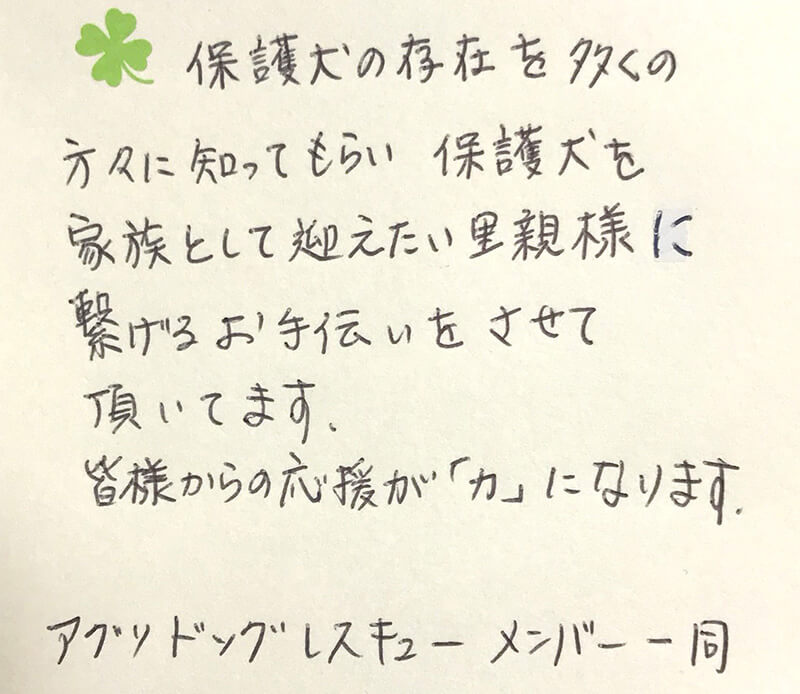 保護犬の存在を多くの
方々に知ってもらい 保護犬を
家族として迎えたい里親様に
繋げるお手伝いをさせて
頂いてます.
皆様からの応援が「力」になります.
アグリドッグレスキュー メンバー一同